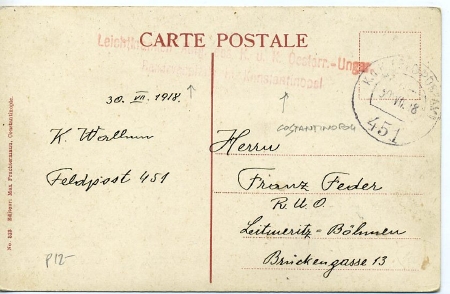 CARTE POSTALE
k. u. k. Oesterr.-Ungar.
Konstantinopel
30. VII. 1918.
451
COSTANTINOPOLI
K. Wallum
Feldpost 451
Herrn
Franz Feder
R. U. O.
Leitmeritz - Böhmen
Brückengasse 13
P12-
No. 523 Editeur: Max Fruchtermann, Constantinople.